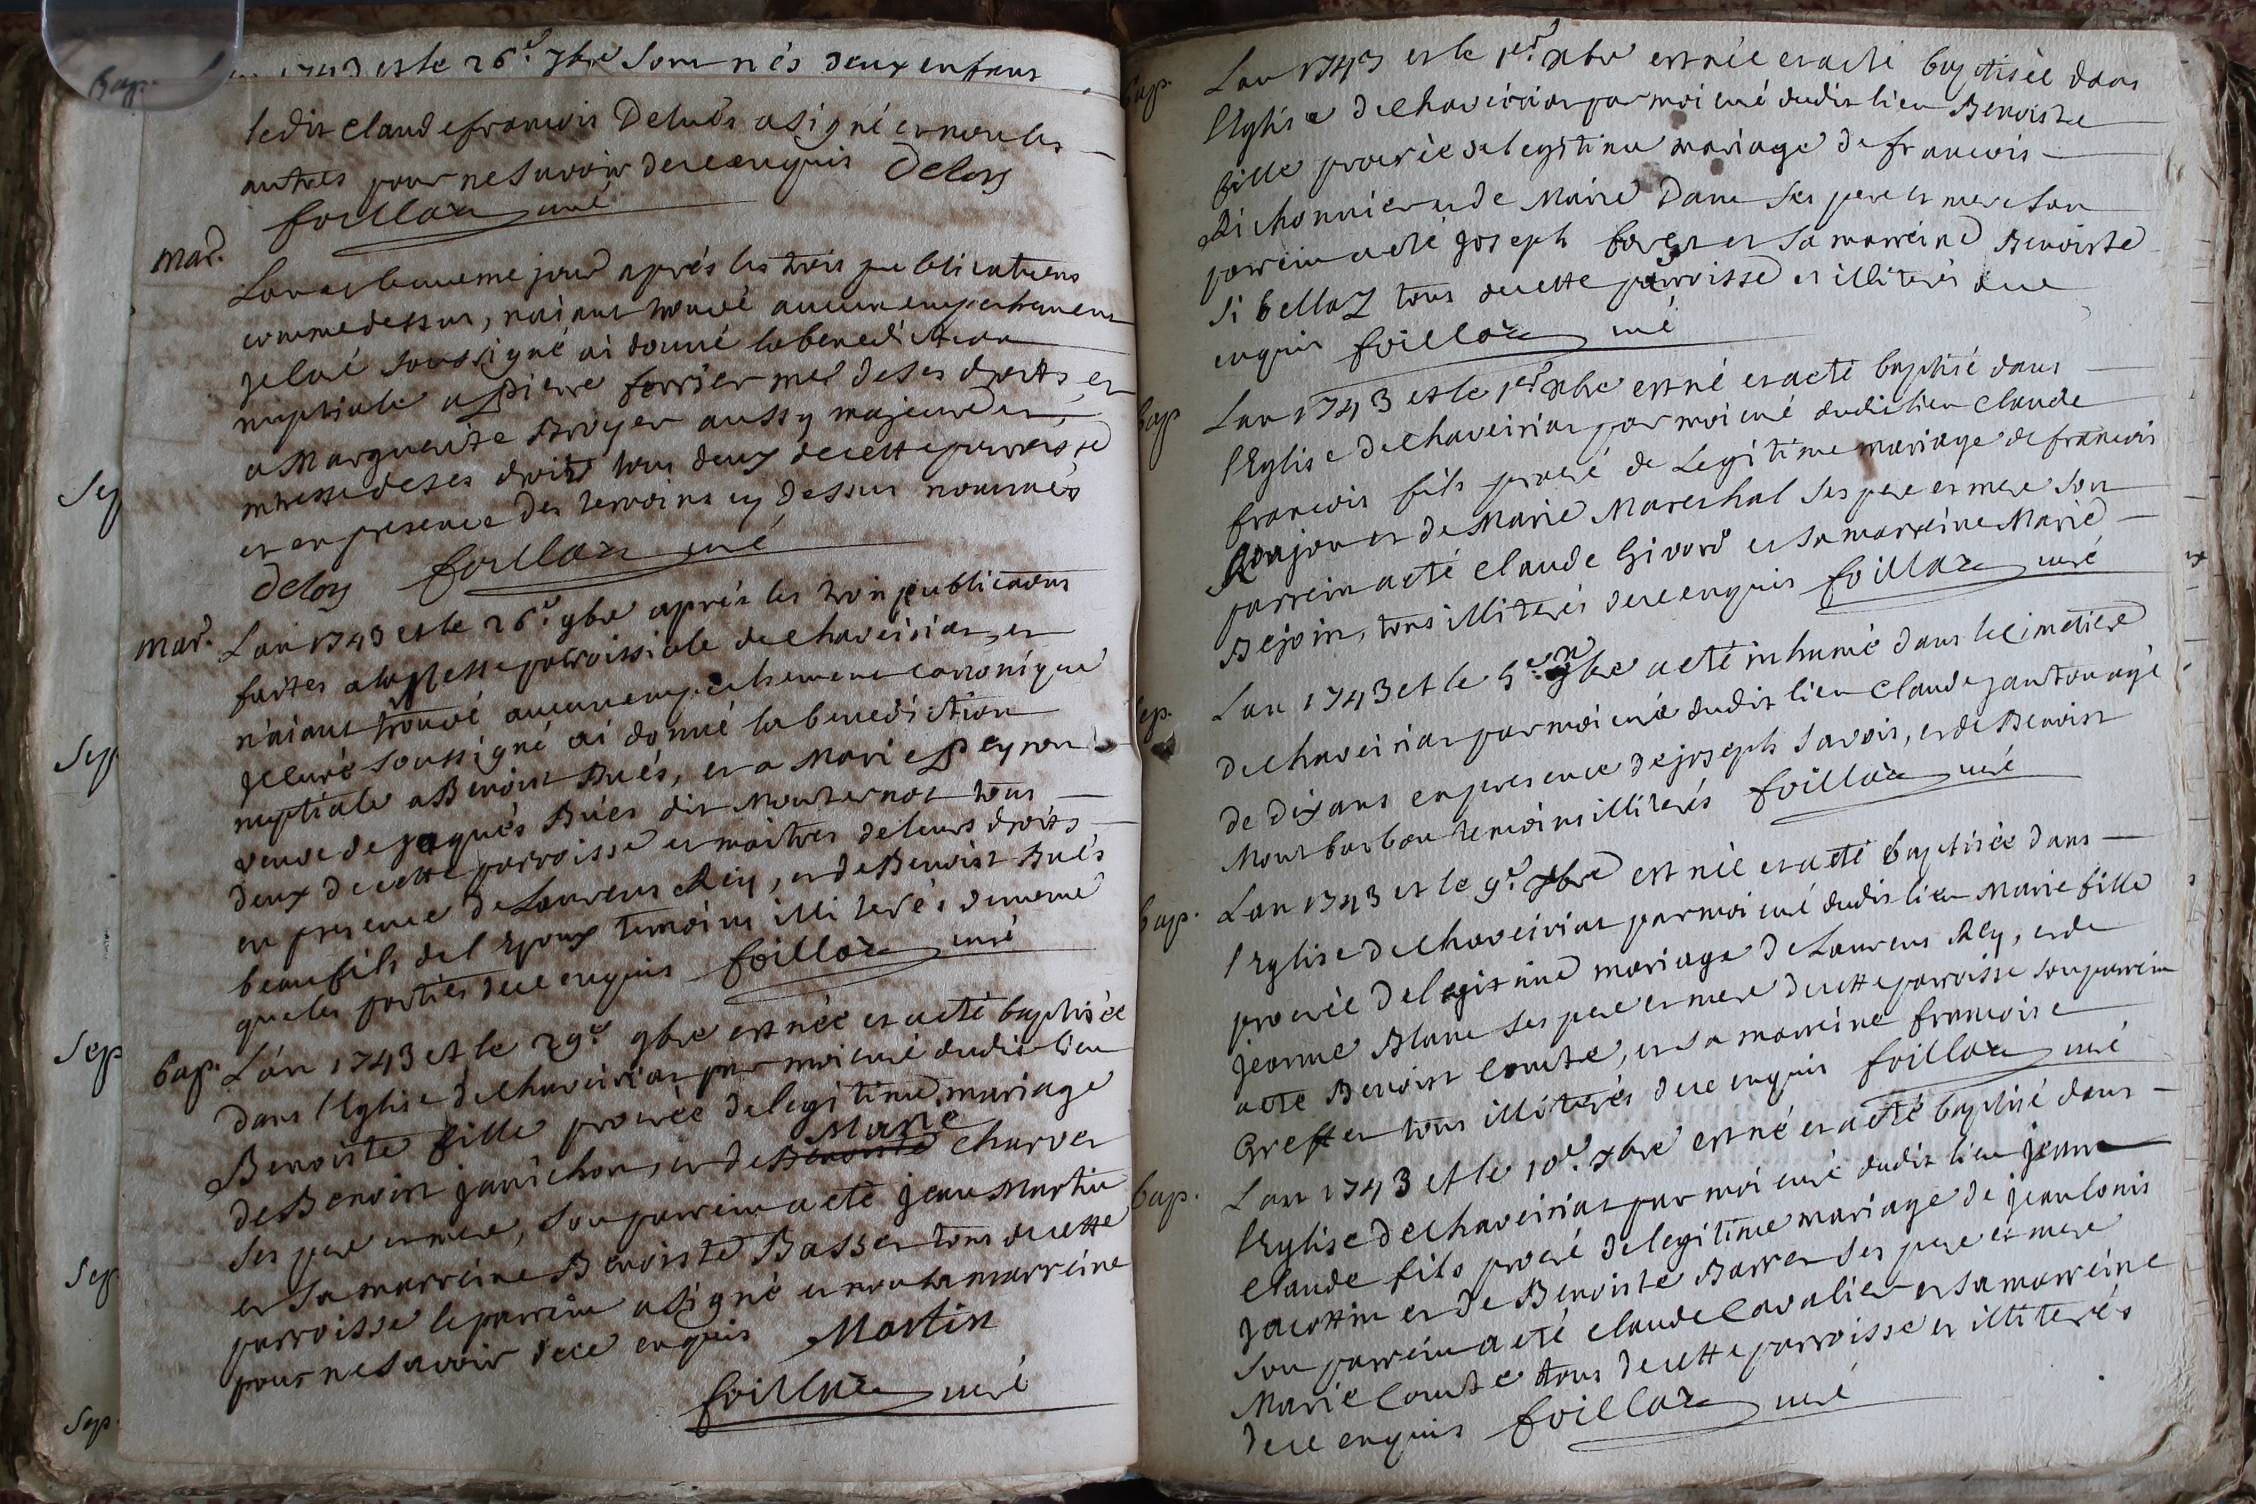 Bap.
1743 et le 26.e 7bre sont nés deux enfans
ledit Claude francois Delués a signé et non les
autres pour ne savoir de ce enquis Delorg
foillaz curé
Mar.
Lan et le meme jour aprés les trois publications
comme dessus, naiant trouvé aucun empechement
je curé soussigné ai donné la benediction
nuptiale a pierre ferrier mes de ses droits, et
a Marguerite Broyer aussy majeure et
mtresse de ses droits tous deux de cette parroisse
et en presence des temoins cy dessus nommés
Delorg foillaz curé
Mar. Lan 1743 et le 26.e 9bre aprés les trois publications
faites a la Messe parroissiale de chaveiriat, et
n'aiant trouvé aucun empechement canonique
je curé soussigné ai donné la benediction
nuptiale a Benoist Bués, et a Marie Peyron
veuve de jaques Bués dit Monternot tous
deux de cette parroisse et maitres de leurs droits
en presence de Laurens Rey, et de Benoist Bués
beaufils de l'Epoux temoins illiterés de meme
que les parties de ce enquis foillaz curé
Bap. L'an 1743 et le 29.e 9bre est née et a eté baptisée
dans l'Eglise de chaveiriat par moi curé dudit lieu
Benoiste fille procrée de legitime mariage
Marie
de Benoist janichon, et de Benoiste charvet
ses pere et mere, son parrein a eté jean Martin
et sa marreine Benoiste Basset tous de cette
parroisse le parrein a signé et non la marreine
pour ne savoir de ce enquis Martin
foillaz curé
Sep
Sep
Sep
Sep.
Sep.
Bap. Lan 1743 et le 1er xbre est née et a eté baptisée dans
l'Eglise de chaveiriat par moi curé dudit lieu Benoiste
fille procrée de legitime mariage de francois
Dichonnier et de Marie Dane ses pere et mere son
parrein a eté joseph boret et sa marreine Benoiste
Sibellaz tous de cette parroisse et illiterés de ce
enquis foillaz curé
Bap Lan 1743 et le 1er xbre est né et a eté baptisé dans
l'Eglise de chaveiriat par moi curé dudit lieu claude
francois fils procreé de Legitime mariage de francois
Goujon et de Marie Mareschal ses pere et mere son
parrein a eté claude Givord et sa marreine Marie
Bejoin, tous illiterés de ce enquis foillaz curé
Sep. Lan 1743 et le 5.e xbre a eté inhumé dans le cimetiere
de chaveiriat par moi curé dudit lieu claude janton agé
de dix ans en presence de joseph Savois, et de Benoist
Montbarbon temoins illiterés foillaz curé
Bap. Lan 1743 et le 9.e xbre est née et a eté baptisée dans
l'Eglise de chaveiriat par moi curé dudit lieu Marie fille
procrée de legitime mariage de Laurens Rey, et de
jeanne Blanc ses pere et mere de cette parroisse son parrein
a eté Benoist Comte, et sa marreine francoise
Greffet tous illiterés de ce enquis foillaz curé
Bap. Lan 1743 et le 10.e xbre est né et a eté baptisé dans
l'Eglise de chaveiriat par moi curé dudit lieu jean
claude fils procreé de legitime mariage de jean louis
jacottin et de Benoiste Barret ses pere et mere
son parrein a eté claude Cavalier et sa marreine
Marie Comte tous de cette parroisse et illiterés
de ce enquis foillaz curé